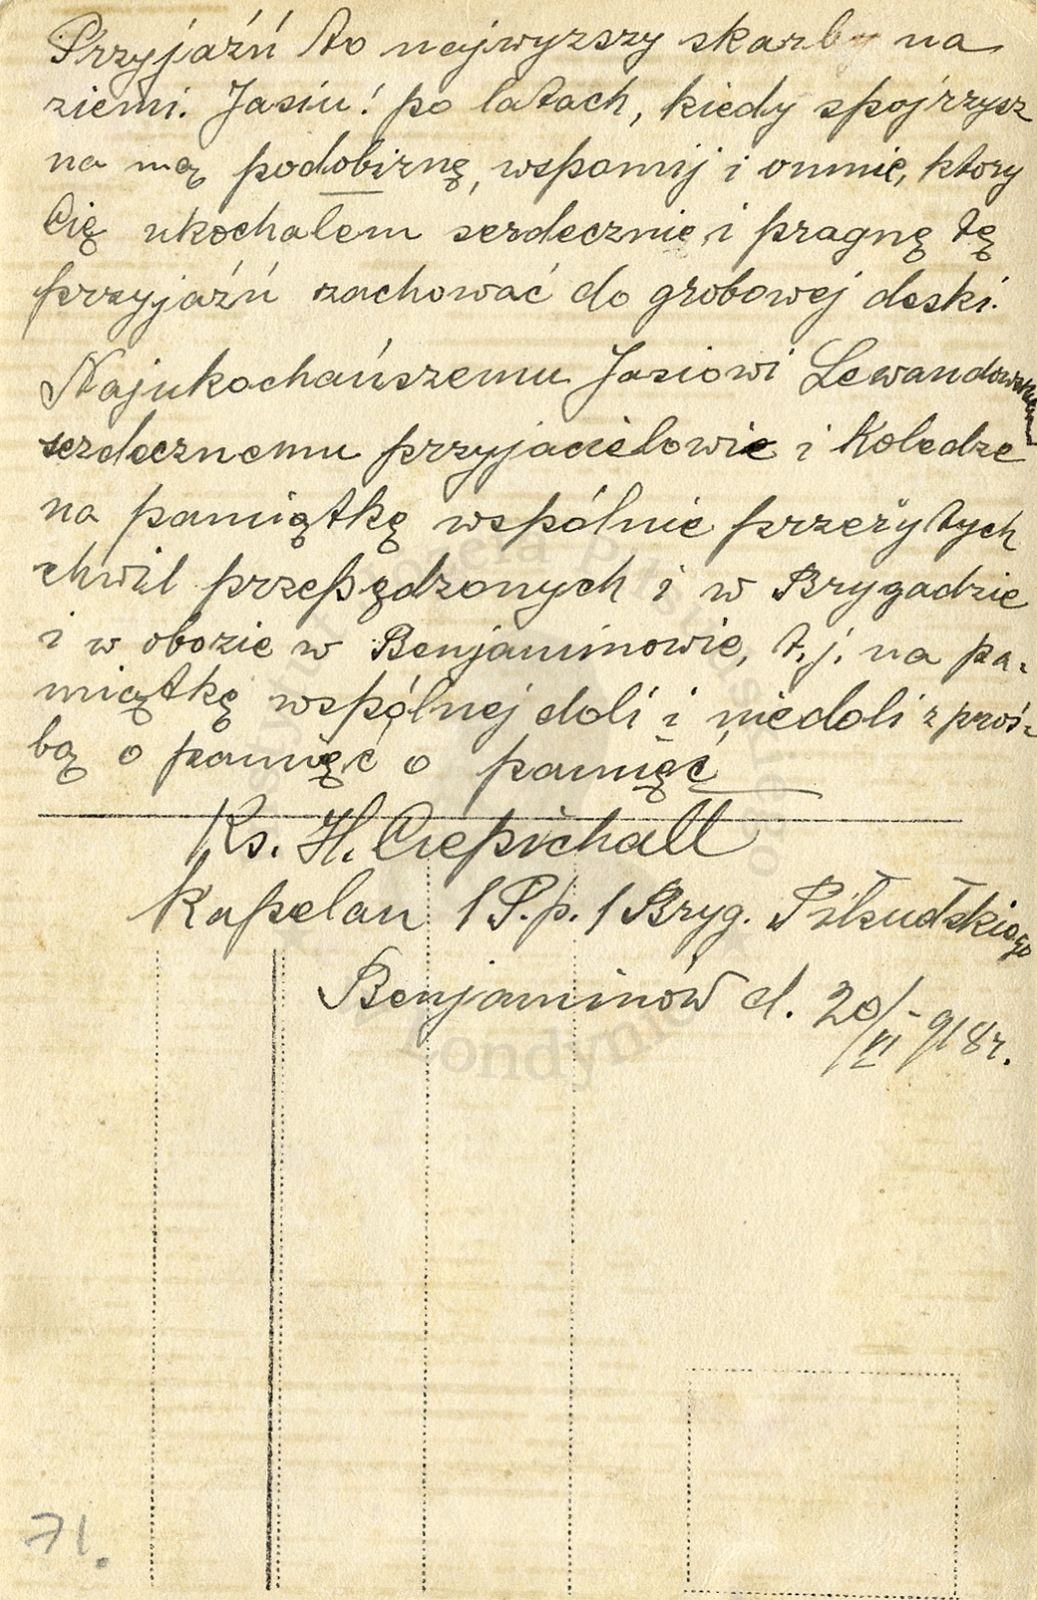 Przyjaźń to najwyższy skarb na
ziemi. Jasiu! po latach, kiedy spojrzysz
na mą podobiznę, wspomij i omnie, ktory
Cię ukochałem serdecznie i pragnę tę
przyjaźń zachować do grobowej deski.
Najukochańszemu Jasiowi Lewandowskiemu
serdecznemu przyjacielowi i Koledze
na pamiątkę wspólnie przeżytych
chwil przepędzonych i w Brygadzie
i w obozie w Benjaminowie, t.j. na pa-
miątkę wspólnej doli i niedoli z proś-
bą o pamięć o pamięć
Ks. H. Ciepichall
Kapelan 1 P.p. 1 Bryg. Piłsudskiego
Benjaminów d. 20/VI-918r.
71.
Londynie